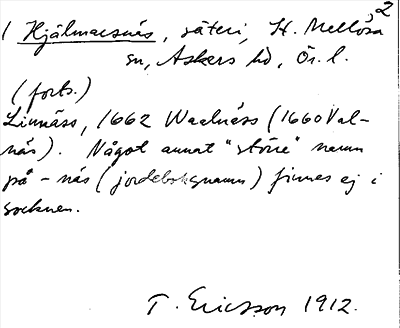 1 Hjälmarsnäs, säteri, St. Mellösa 2
sn, Askers hd, Ör. l.
(forts.)
Linnäss, 1662 Waalnäss (1660 Val-
näs). Något annat "större" namn
på -näs (jordeboksnamn) finnes ej i
socknen.
T. Ericsson 1912.